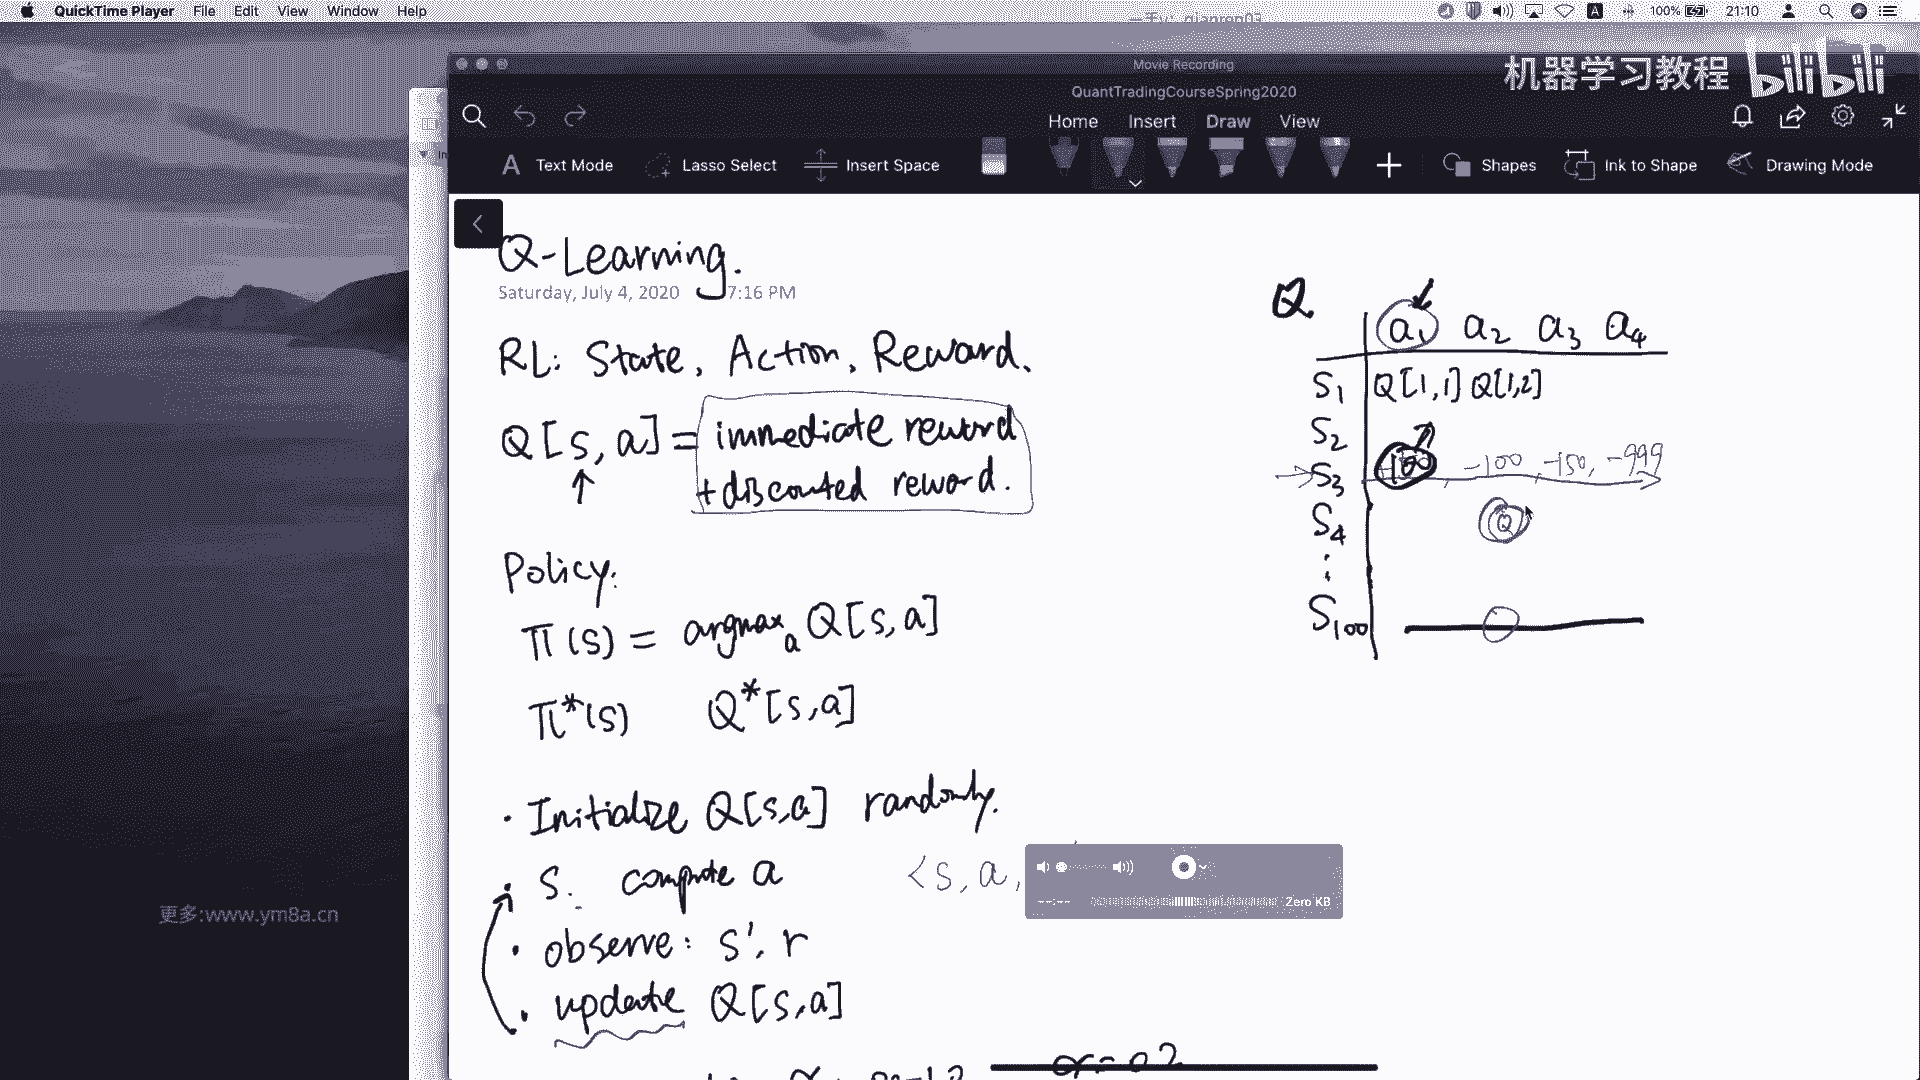 QuickTime Player File Edit View Window Help
100% 21:10
Movie Recording
机器学习教程 bilibili
QuantTradingCourseSpring2020
Home Insert Draw View
Text Mode Lasso Select Insert Space Shapes Ink to Shape Drawing Mode
Q-Learning.
Saturday, July 4, 2020 7:16 PM
RL: State, Action, Reward.
Q[s,a] = immediate reword
+ discounted reword.
Policy:
π(s) = argmax_a Q[s,a]
π*(s) Q*[s,a]
· Initialize Q[s,a] randomly.
· s. compute a <s, a,
· observe: s', r
· update Q[s,a]
α = 0.2
Q
a1 a2 a3 a4
S1 Q[1,1] Q[1,2]
S2
S3 100, -100, -150, -999
S4 Q
⋮
S100
Zero KB
更多:www.ym8a.cn